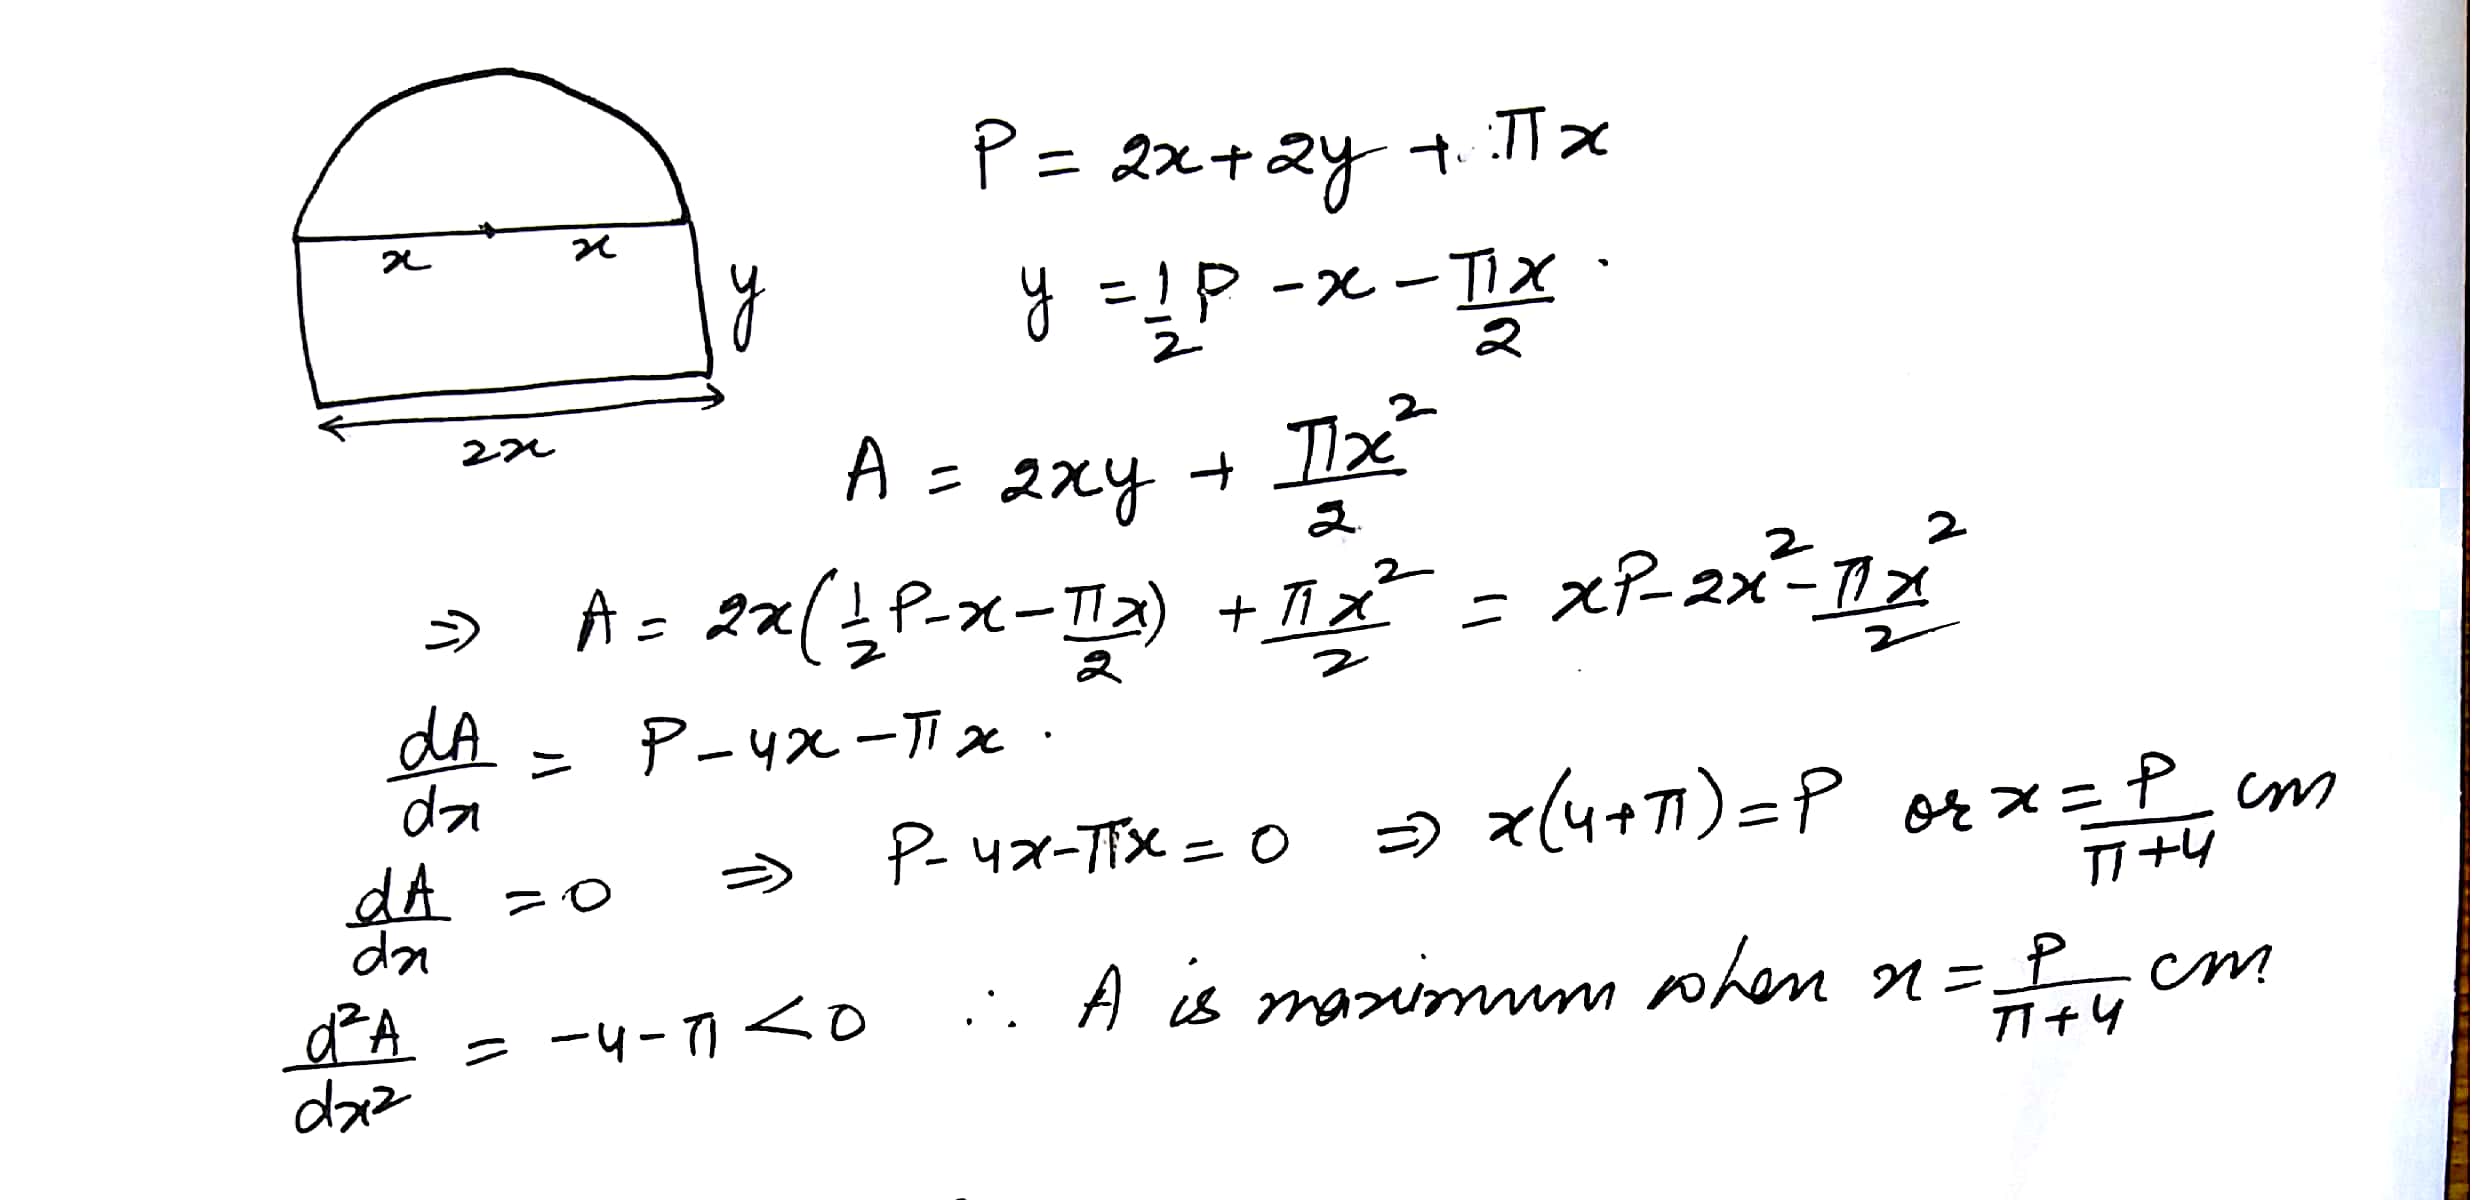 x x
y
2x
P = 2x + 2y + πx
y = 1/2 P - x - πx/2
A = 2xy + πx²/2
⇒ A = 2x(1/2 P - x - πx/2) + πx²/2 = xP - 2x² - πx²/2
dA/dx = P - 4x - πx.
dA/dx = 0 ⇒ P - 4x - πx = 0 ⇒ x(4+π) = P or x = P/(π+4) cm
d²A/dx² = -4 - π < 0 ∴ A is maximum when x = P/(π+4) cm